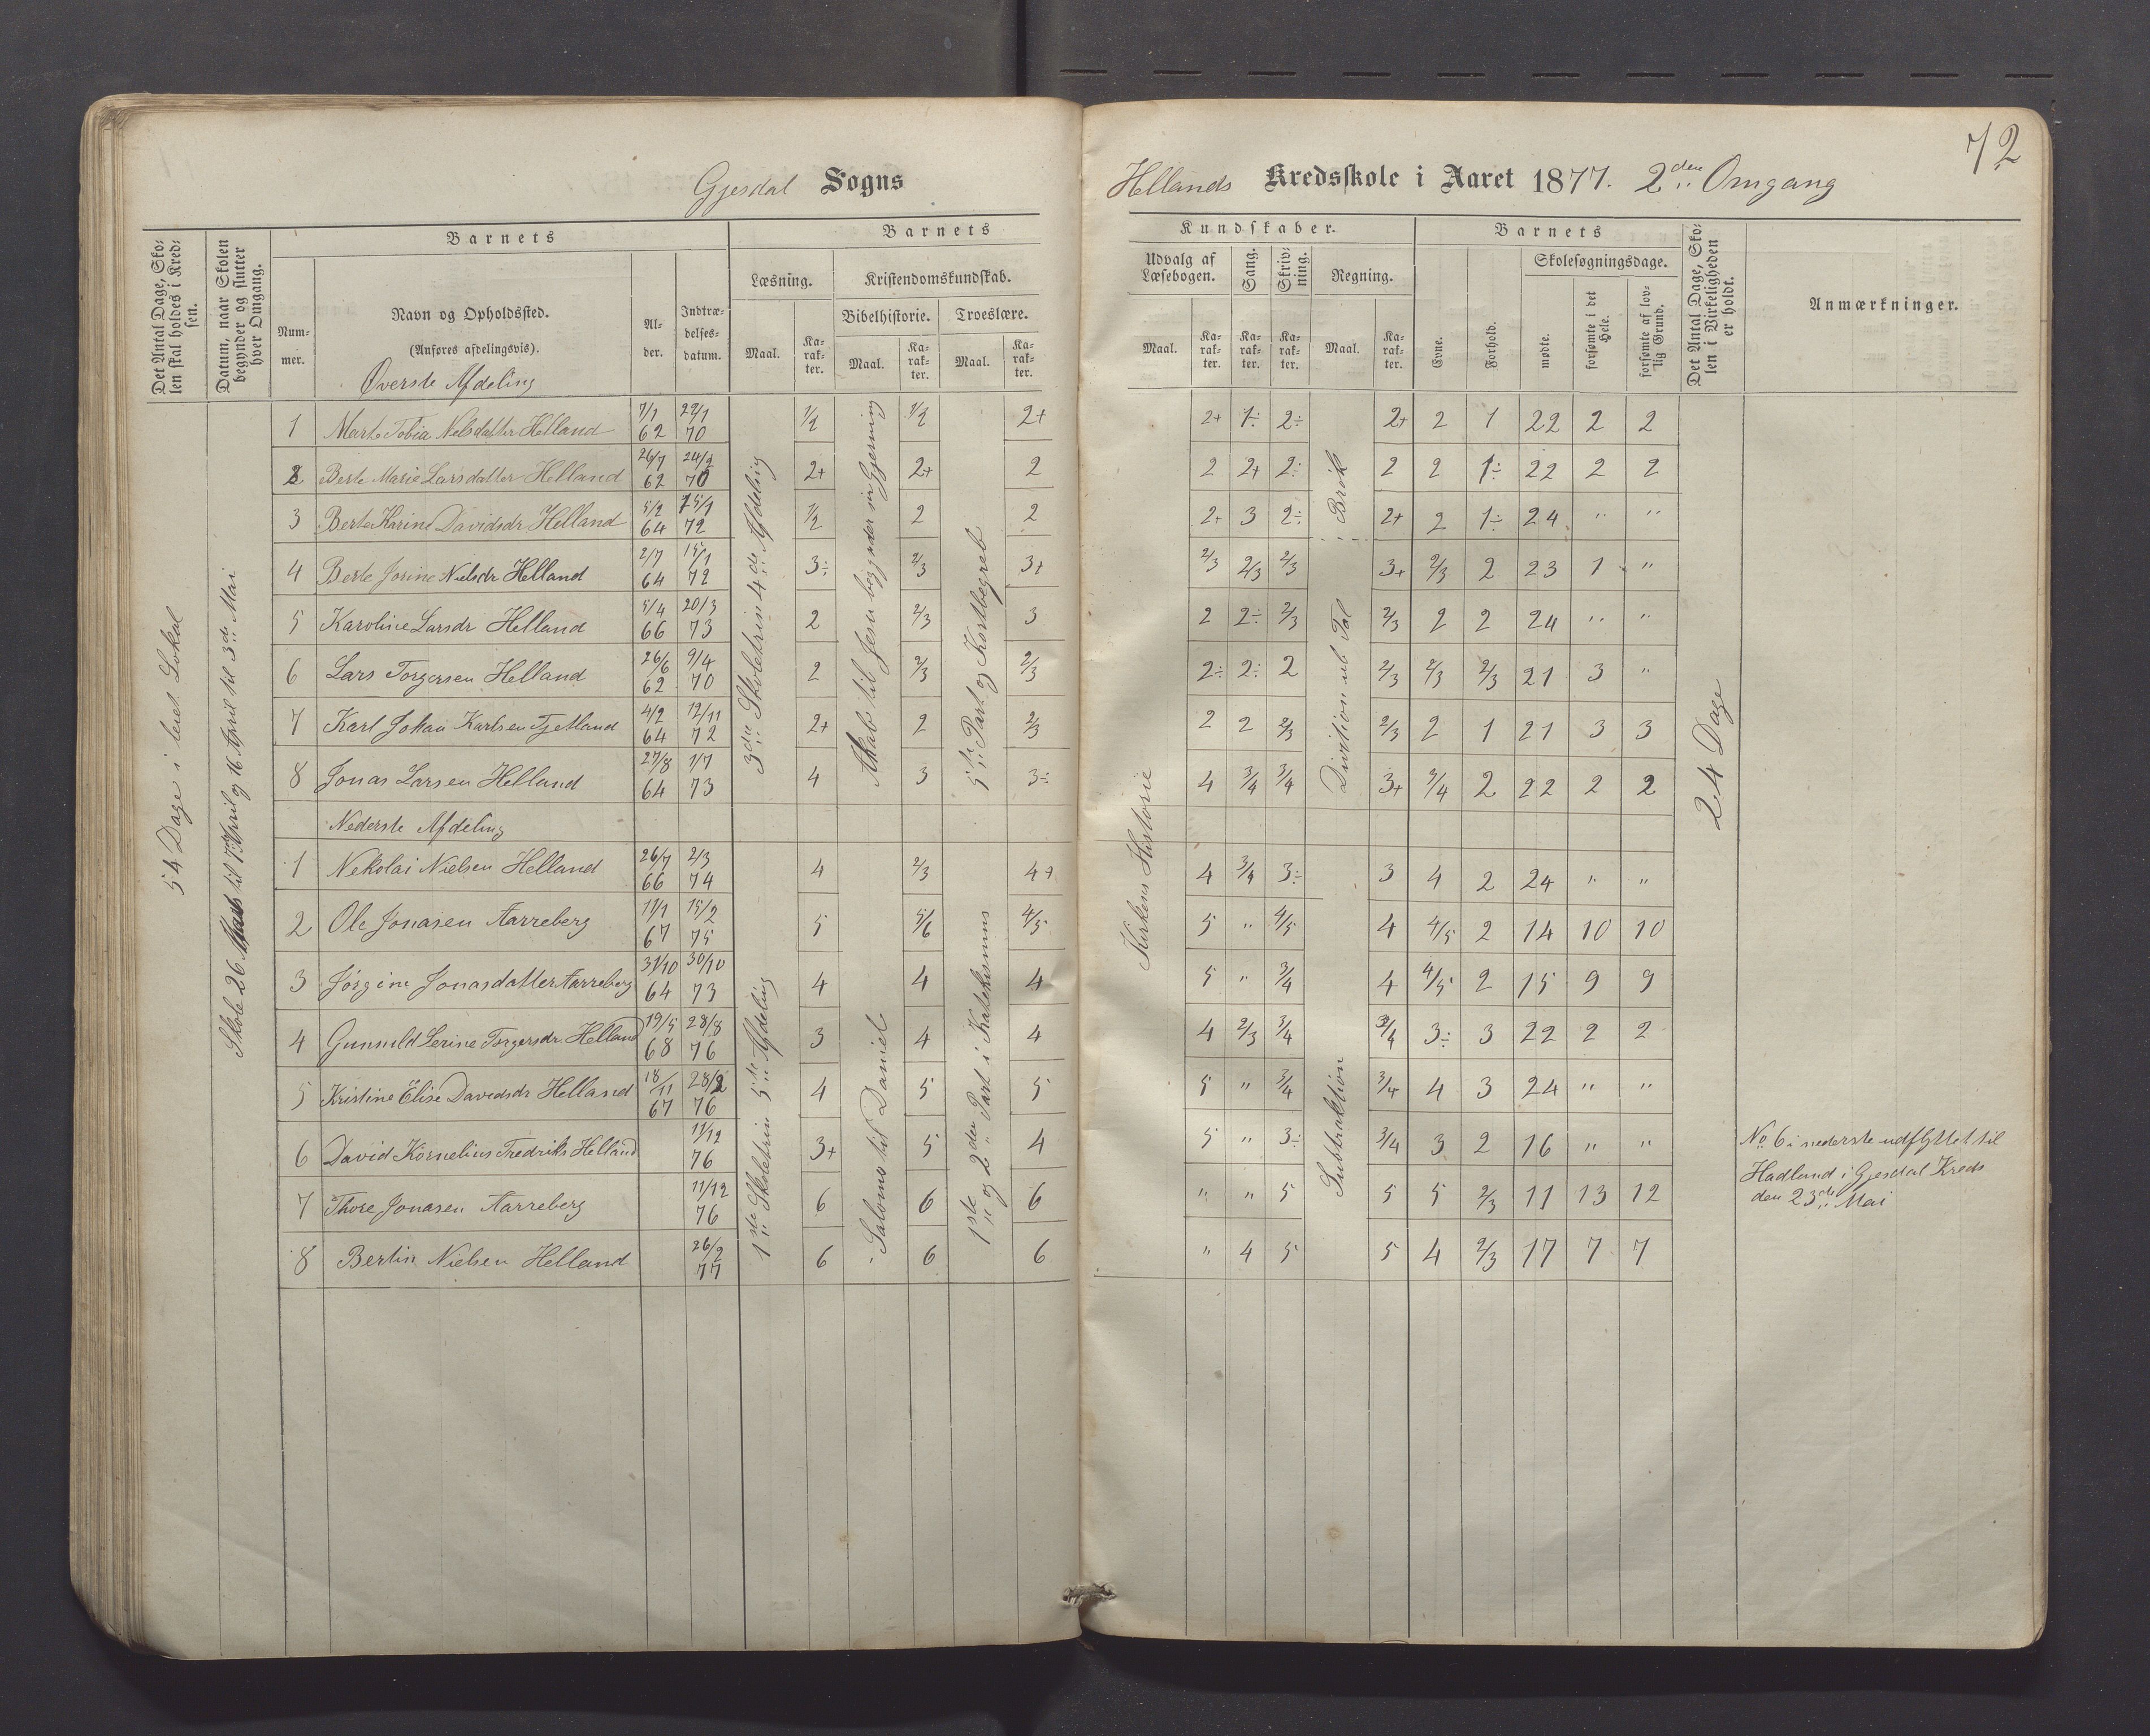 72
Gjesdal Sogns Hellands Kredsskole i Aaret 1877. 2den Omgang
Det Antal Dage, Skolen skal holdes i Kredsen.
Datum, naar Skolen begynder og slutter hver Omgang.
Barnets
Nummer.
Navn og Opholdssted.
(Anføres afdelingsvis).
Alder.
Indtrædelsesdatum.
Barnets Kundskaber.
Læsning.
Maal.
Karakter.
Kristendomskundskab.
Bibelhistorie.
Maal.
Karakter.
Troeslære.
Maal.
Karakter.
Udvalg af Læsebogen.
Maal.
Karakter.
Sang.
Karakter.
Skrivning.
Karakter.
Regning.
Maal.
Karakter.
Barnets
Evne.
Forhold.
Skolesøgningsdage.
mødte.
forsømte i det Hele.
forsømte af lovlig Grund.
Det Antal Dage, Skolen i Virkeligheden er holdt.
Anmærkninger.
54 Dage i leiet Lokal
Skole 26 Marts til 7 April og 16 April til 3die Mai
3die Skoletrin 4de Afdeling
Akab til Jesu begynder sin Gjerning
5te Part og Kortbegreb
Kirkens Historie
Division ub Tal i Brök
24 Dage
Øverste Afdeling
1 Marte Tobia Nelsdatter Helland 7/1 62 22/1 70 1/2 1/2 2+ 2+ 1÷ 2÷ 2+ 2 1 22 2 2
2 Berte Marie Larsdatter Helland 26/7 62 24/2 70 2+ 2+ 2 2 2+ 2÷ 2 2 1÷ 22 2 2
3 Berte Karine Davidsdr Helland 5/2 64 15/1 72 1/2 2 2 2+ 3 2÷ 2+ 2 1÷ 24 " "
4 Berte Josine Nielsdr Helland 2/7 64 15/1 72 3÷ 2/3 3+ 2/3 2/3 2/3 3+ 2/3 2 23 1 "
5 Karoline Larsdr Helland 5/4 66 20/3 73 2 2/3 3 2 2÷ 2/3 2/3 2 2 24 " "
6 Lars Torgersen Helland 26/6 62 9/4 70 2 2/3 2/3 2÷ 2÷ 2 2/3 2/3 2/3 21 3 "
7 Karl Johan Karlsen Tjetland 4/2 64 12/11 72 2+ 2 2/3 2 2 2/3 2/3 2 1 21 3 3
8 Jonas Larsen Helland 27/8 64 1/7 73 4 3 3÷ 4 3/4 3/4 3+ 3/4 2 22 2 2
Nederste Afdeling
1ste Skoletrin 5te Afdeling
Salomo til Daniel
1ste og 2den Part i Katekismus
Subtraktion
1 Nekolai Nielsen Helland 26/7 66 2/3 74 4 2/3 4+ 4 3/4 3÷ 3 4 2 24 " "
2 Ole Jonasen Aarreberg 11/1 67 15/2 75 5 5/6 4/5 5 " 4/5 4 4/5 2 14 10 10
3 Jørgine Jonasdatter Aarreberg 31/10 64 30/10 73 4 4 4 5 " 3/4 4 4/5 2 15 9 9
4 Gunnuld Serine Torgersdr. Helland 19/5 68 28/8 76 3 4 4 4 2/3 3/4 3/4 3÷ 3 22 2 2
5 Kristine Elise Davidsdr Helland 18/11 67 28/2 76 4 5 5 5 " 3/4 3/4 4 3 24 " "
6 David Kornelius Fredriks Helland 11/12 76 3+ 5 4 5 " 3÷ 3/4 3 2 16 " " No 6 i nederste udflyttet til Hadland i Gjesdal Kreds den 23de Mai
7 Thore Jonasen Aarreberg 11/12 76 6 6 6 " " 5 5 5 2/3 11 13 12
8 Bertin Nielsen Helland 26/2 77 6 6 6 " 4 5 5 4 2/3 17 7 7